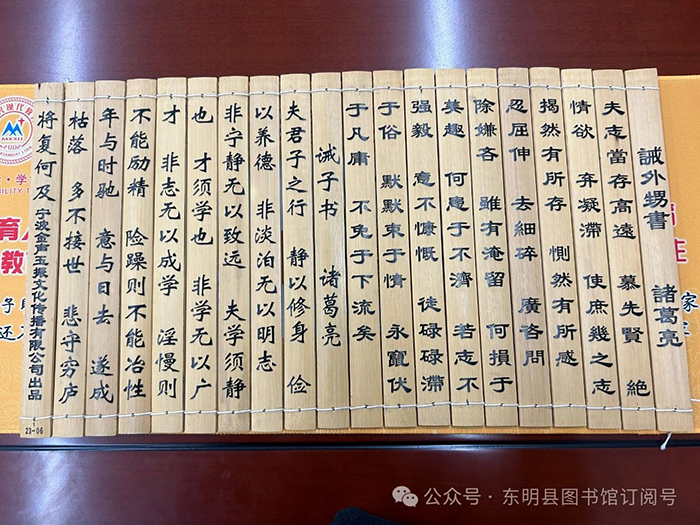 誡外甥書 諸葛亮
夫志當存高遠 慕先賢 絕
情欲 弃凝滯 使庶幾之志
揭然有所存 惻然有所感
忍屈伸 去細碎 廣咨問
除嫌吝 雖有淹留 何損于
美趣 何患于不濟 若志不
强毅 意不慷慨 徒碌碌滯
于俗 默默束于情 永竄伏
于凡庸 不免于下流矣
诫子书 诸葛亮
夫君子之行 静以修身 俭
以养德 非淡泊无以明志
非宁静无以致远 夫学须静
也 才须学也 非学无以广
才 非志无以成学 淫慢则
不能励精 险躁则不能冶性
年与时驰 意与日去 遂成
枯落 多不接世 悲守穷庐
将复何及 宁波金声玉振文化传播有限公司出品
23-06
育
教
家
公众号 · 东明县图书馆订阅号